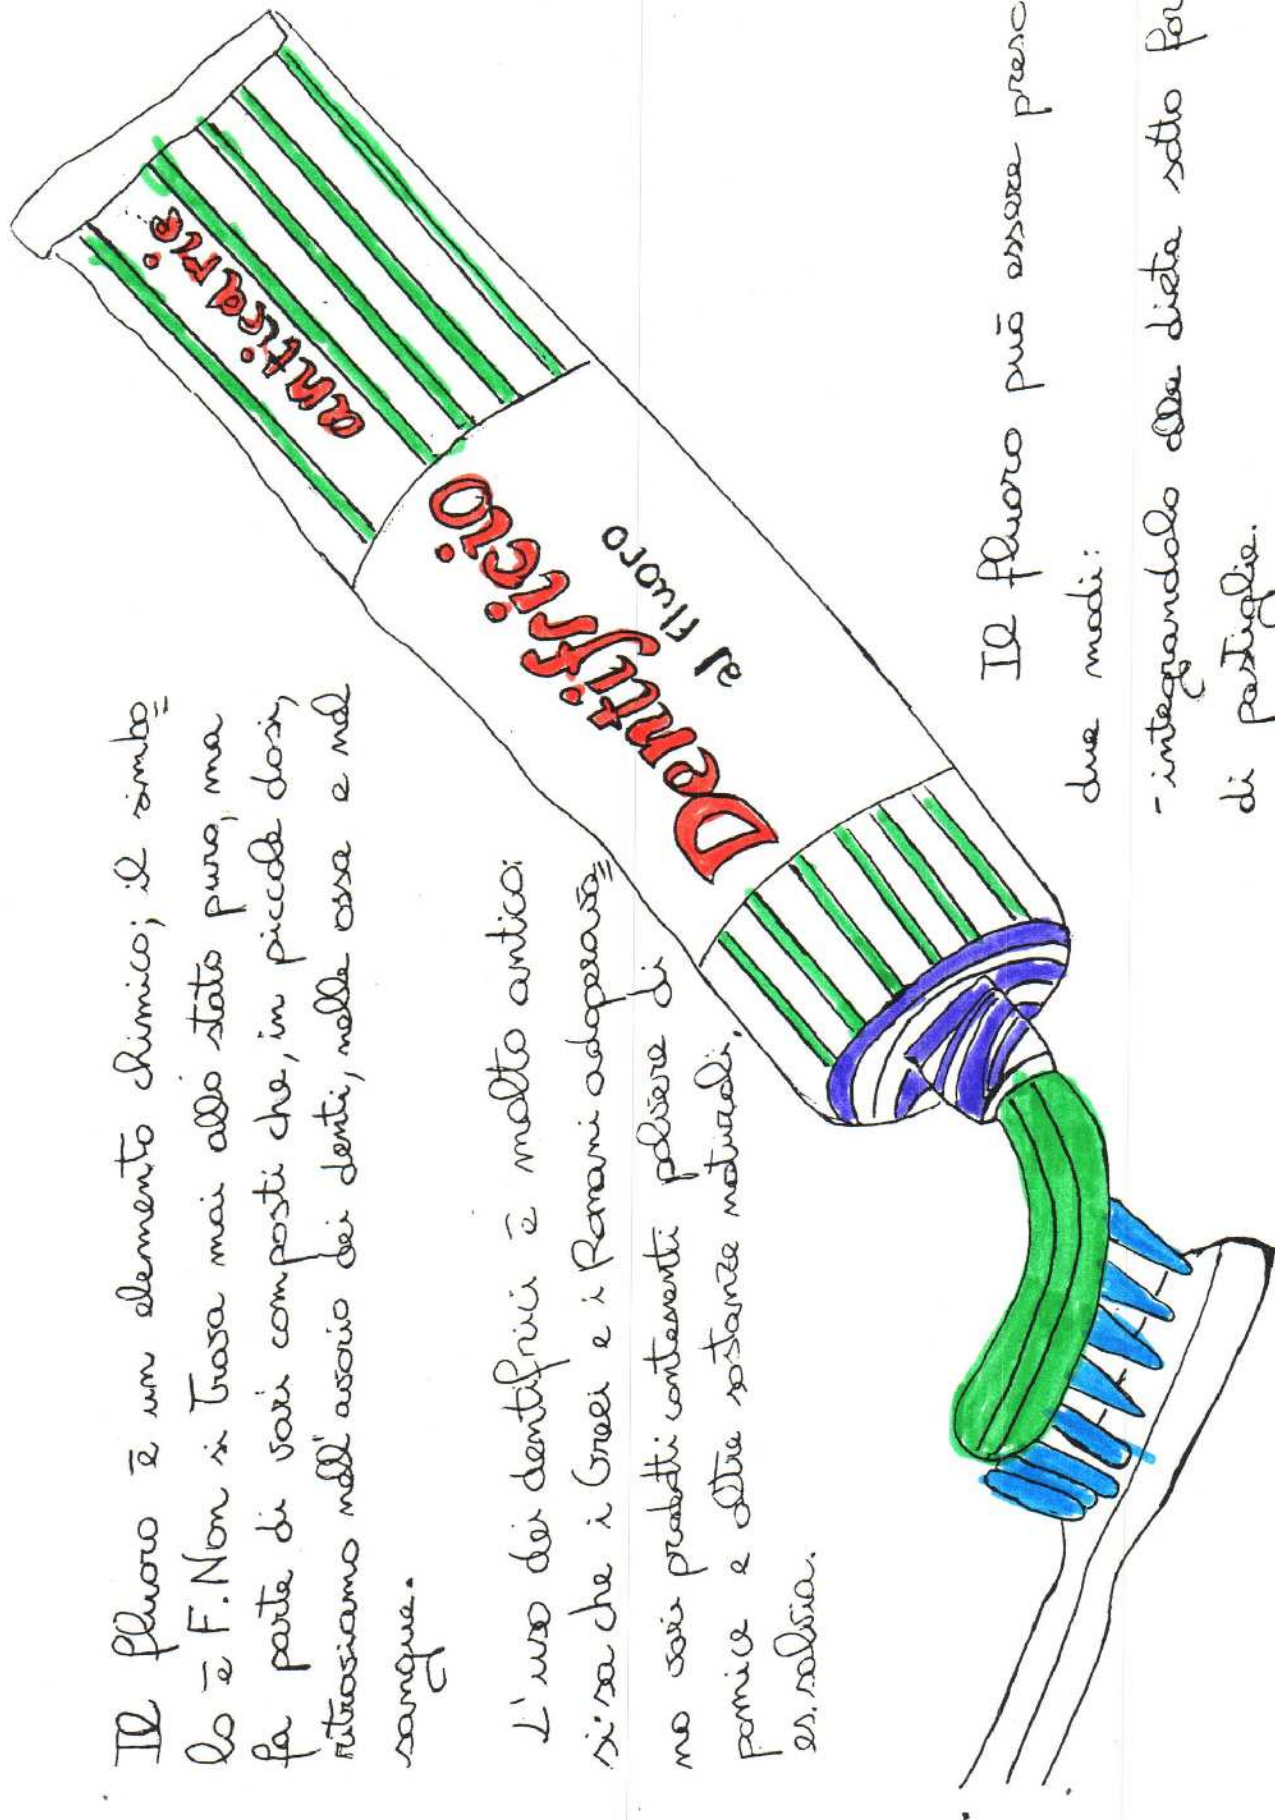 Il fluoro è un elemento chimico; il simbo=
lo è F. Non si trova mai allo stato puro, ma
fa parte di vari composti che, in piccole dosi,
ritroviamo nell'avorio dei denti, nelle ossa e nel
sangue.
L'uso dei dentifrici è molto antico:
si sa che i Greci e i Romani adoperava=
no vari prodotti contenenti polvere di
pomice e altre sostanze naturali,
es. salvia.
anticarie
Dentifricio
al fluoro
Il fluoro può essere preso
due modi:
- integrandolo alla dieta sotto for
di pastiglie.